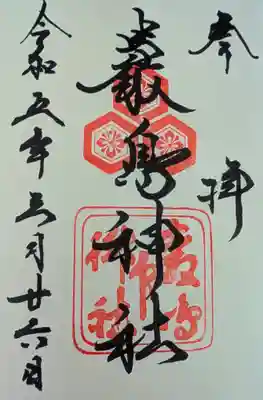 奉拝
嚴島神社
嚴島神社
令和五年三月廿六日